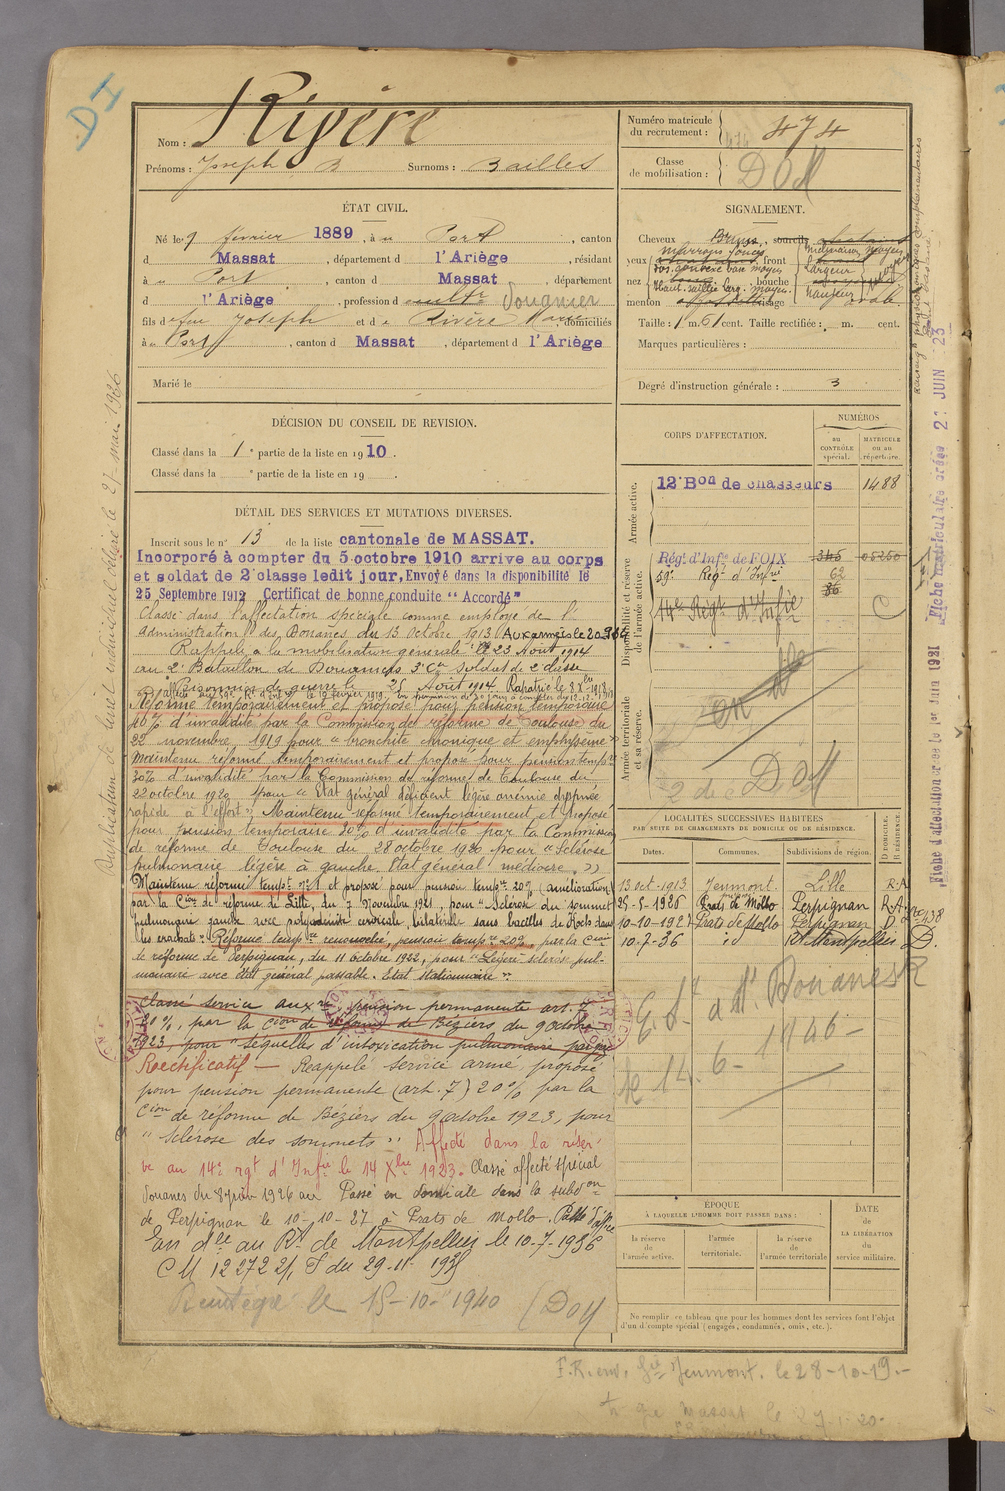 DI
Nom : Rivère
Prénoms : Joseph B Surnoms : Bailles
Numéro matricule
du recrutement : 474
Classe
de mobilisation : DOM
ÉTAT CIVIL.
Né le 9 février 1889, à Port, canton
d Massat, département d l'Ariège, résidant
à Port, canton d Massat, département
d l'Ariège, profession d cultr Douanier
fils d feu Joseph et d Rivère Marie, domiciliés
à Port, canton d Massat, département d l'Ariège
Marié le
SIGNALEMENT.
Cheveux Bruns, sourcils châtains
marrons foncés
yeux front
nez bouche
menton visage ovale
Taille : 1 m. 61 cent. Taille rectifiée : m. cent.
Marques particulières :
Degré d'instruction générale : 3
DÉCISION DU CONSEIL DE REVISION.
Classé dans la 1e partie de la liste en 1910.
Classé dans la e partie de la liste en 19 .
DÉTAIL DES SERVICES ET MUTATIONS DIVERSES.
Inscrit sous le n° 13 de la liste cantonale de MASSAT.
Incorporé à compter du 5 octobre 1910 arrive au corps
et soldat de 2e classe ledit jour, Envoyé dans la disponibilité le
25 Septembre 1912 Certificat de bonne conduite "Accordé"
Classé dans l'affectation spéciale comme employé de l'
administration des Douanes du 13 Octobre 1913 Aux armées le 20 914
Rappelé à la mobilisation générale le 23 Août 1914
au 2e Bataillon de Douaniers 3e Cie soldat de 2e classe
Prisonnier de guerre le 25 Août 1914. Rapatrié le 8 Xbre 1918
Réformé temporairement et proposé pour pension temporaire
10% d'invalidité par la Commission de réforme de Toulouse du
22 novembre 1919 pour "bronchite chronique et emphysème"
Maintenu réformé temporairement et proposé pour pension tempre
30% d'invalidité par la Commission de réforme de Toulouse du
22 octobre 1920 pour "Etat général déficient légère anémie dyspnée
rapide à l'effort" Maintenu réformé temporairement et proposé
pour pension temporaire 20% d'invalidité par la Commission
de réforme de Toulouse du 28 octobre 1920 pour "Sclérose
pulmonaire légère à gauche, Etat général médiocre."
Maintenu réformé tempre n°1 et proposé pour pension tempre 20% (amélioration)
par la Cion de réforme de Lille, du 7 Novembre 1921, pour "Sclérose du sommet
pulmonaire gauche avec polyadénite cervicale, bilatérale sans bacilles de Koch dans
les crachats" Réformé tempre renouvelé, pension tempre 20%, par la Cion
de réforme de Perpignan, du 11 octobre 1922, pour "Légère sclérose pul-
monaire avec état général passable. Etat stationnaire".
Classé service auxre, pension permanente art. 7
20%, par la Cion de réforme de Béziers, du 9 octobre
1923, pour "séquelles d'intoxication pulmonaire par gaz
Rectificatif — Rappelé Service armé, proposé
pour pension permanente (art. 7) 20% par la
Cion de réforme de Béziers du 9 octobre 1923, pour
"Sclérose des sommets" Affecté dans la réser-
ve au 14e rgt d'Infie le 14 Xbre 1923. Classé affecté spécial
douanes du 8 juin 1926 au Passé en domicile dans la subdon
de Perpignan le 10-10-27 à Prats de Mollo. Passé d'office
En dle au Rt de Montpellier le 10-7-1936
CM 12272 2/ S du 29-11-1935
Réintégré le 15-10-1940 (DOM
CORPS D'AFFECTATION.
NUMÉROS
au
CONTRÔLE
spécial.
MATRICULE
ou au
répertoire.
Armée active.
12e Bon de chasseurs 1488
Disponibilité et réserve
de l'armée active.
Régt d'Infie de FOIX 346 05250
59e Régt d'Infie 62
14e Régt d'Infie 86 C
Armée territoriale
et sa réserve.
DOM
LOCALITÉS SUCCESSIVES HABITÉES
PAR SUITE DE CHANGEMENTS DE DOMICILE OU DE RÉSIDENCE.
Dates. Communes. Subdivisions de région. D DOMICILE. R RÉSIDENCE.
13 oct. 1913. Jeumont. Lille R.A
25-5-1926 Prats de Mollo Perpignan R.A
10-10-1927 Prats de Mollo Perpignan D
10-7-36 id Rt Montpellier D.
E. St à l' Douanes R
1946
le 14-6-
ÉPOQUE
À LAQUELLE L'HOMME DOIT PASSER DANS :
la réserve
de
l'armée active.
l'armée
territoriale.
la réserve
de
l'armée territoriale
DATE
de
LA LIBÉRATION
du
service militaire.
Ne remplir ce tableau que pour les hommes dont les services font l'objet
d'un d'compte spécial (engagés, condamnés, omis, etc.).
F.R. env. Gie Jeumont. le 28-10-19.-
Massat le 27-1-20.
Duplicatum de livret individuel délivré le 27 mai 1926
Fiche matriculaire créée 2 JUIN 23
Fiche d'affectation créée le 1er Juin 1921